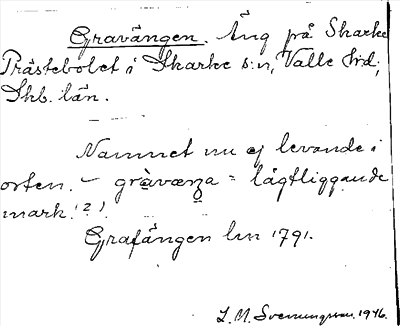 Gravängen. Äng på Skarke
Prästebolet i Skarke s:n, Valle hd;
Skb. län.
Namnet nu ej levande i
orten. – = lågtliggande
mark (?).
Grafängen lm 1791.
L. M. Svenungsson. 1946.